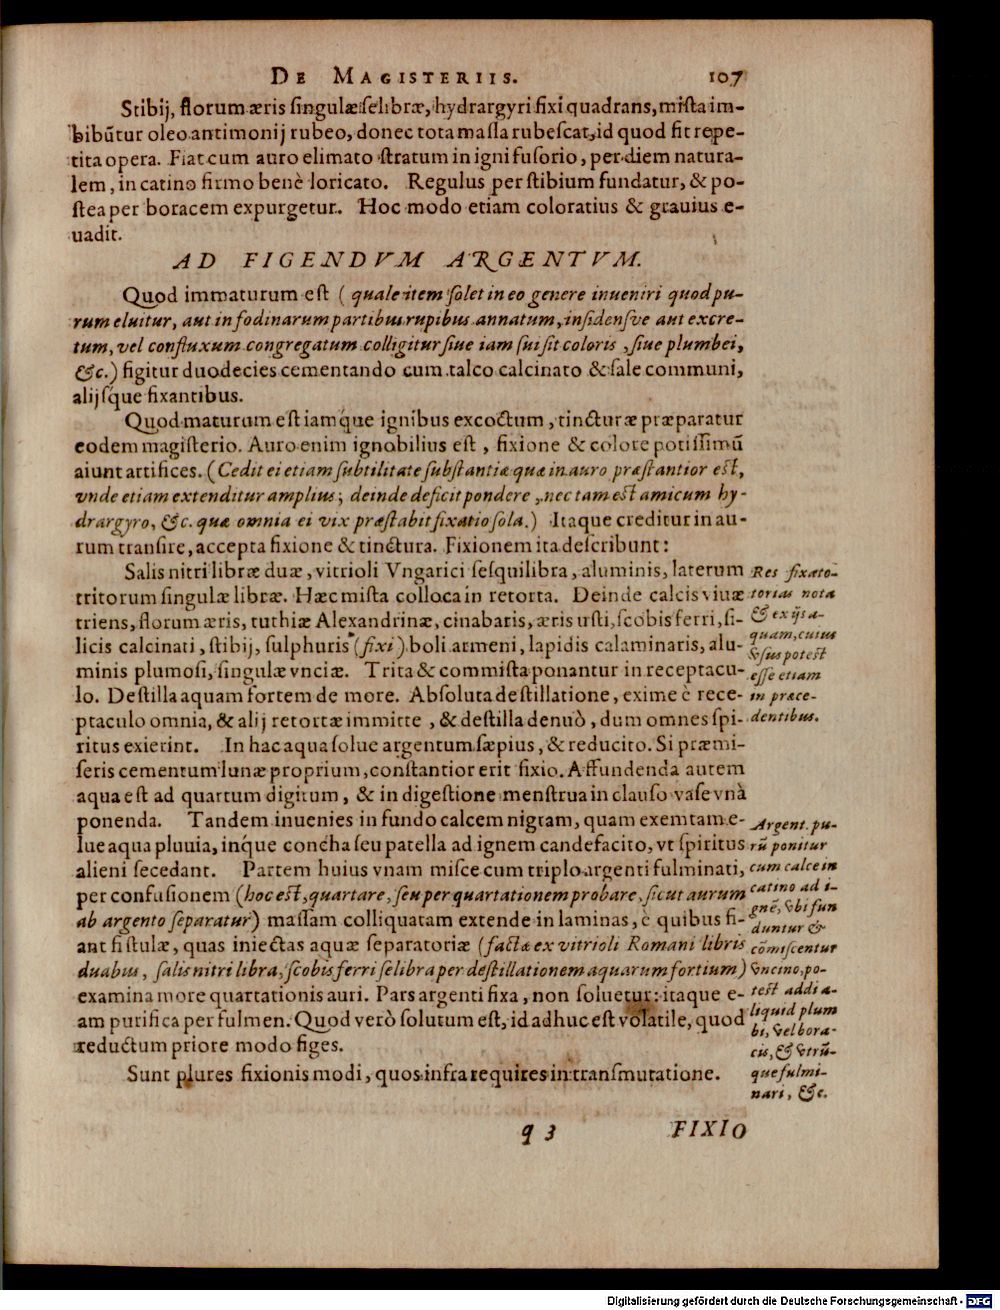 DE MAGISTERIIS. 107
Stibij, florum æris singulæ selibræ, hydrargyri fixi quadrans, mista im-
bibũtur oleo antimonij rubeo, donec tota massa rubescat, id quod fit repe-
tita opera. Fiat cum auro elimato stratum in igni fusorio, per diem natura-
lem, in catino firmo benè loricato. Regulus per stibium fundatur, & po-
stea per boracem expurgetur. Hoc modo etiam coloratius & grauius e-
uadit.
AD FIGENDVM ARGENTVM.
Quod immaturum est ( quale item solet in eo genere inueniri quod pu-
rum eluitur, aut in fodinarum partibus rupibus annatum, insidensve aut excre-
tum, vel confluxum congregatum colligitur siue iam sui sit coloris, siue plumbei,
&c.) figitur duodecies cementando cum talco calcinato & sale communi,
alijsq́ue fixantibus.
Quod maturum est iamq́ue ignibus excoctum, tincturæ præparatur
eodem magisterio. Auro enim ignobilius est, fixione & colore potissimũ
aiunt artifices. (Cedit ei etiam subtilitate substantiæ quæ in auro præstantior est,
vnde etiam extenditur amplius; deinde deficit pondere, nec tam est amicum hy-
drargyro, &c. quæ omnia ei vix præstabit fixatio sola.) Itaque creditur in au-
rum transire, accepta fixione & tinctura. Fixionem ita describunt:
Salis nitri libræ duæ, vitrioli Vngarici sesquilibra, aluminis, laterum
tritorum singulæ libræ. Hæc mista colloca in retorta. Deinde calcis viuæ
triens, florum æris, tuthiæ Alexandrinæ, cinabaris, æris usti, scobis ferri, si-
licis calcinati, stibij, sulphuris (fixi) boli armeni, lapidis calaminaris, alu-
minis plumosi, singulæ vnciæ. Trita & commista ponantur in receptacu-
lo. Destilla aquam fortem de more. Absoluta destillatione, exime è rece-
ptaculo omnia, & alij retortæ immitte, & destilla denuò, dum omnes spi-
ritus exierint. In hac aqua solue argentum sæpius, & reducito. Si præmi-
seris cementum lunæ proprium, constantior erit fixio. Affundenda autem
aqua est ad quartum digitum, & in digestione menstrua in clauso vase vnà
ponenda. Tandem inuenies in fundo calcem nigram, quam exemtam e-
lue aqua pluuia, inq́ue concha seu patella ad ignem candefacito, vt spiritus
alieni secedant. Partem huius vnam misce cum triplo argenti fulminati,
per confusionem (hoc est, quartare, seu per quartationem probare, sicut aurum
ab argento separatur) massam colliquatam extende in laminas, è quibus fi-
ant fistulæ, quas iniectas aquæ separatoriæ (factæ ex vitrioli Romani libris
duabus, salis nitri libra, scobis ferri selibra per destillationem aquarum fortium)
examina more quartationis auri. Pars argenti fixa, non soluetur: itaque e-
am purifica per fulmen. Quod verò solutum est, id adhuc est volatile, quod
reductum priore modo figes.
Sunt plures fixionis modi, quos infra requires in transmutatione.
Res fixato-
torias nota
& ex ijs a-
quam, cuius
& sus potest
esse etiam
in præce-
dentibus.
Argent. pu-
rũ ponitur
cum calce in
catino ad i-
gnẽ, vbi fun
duntur &
cõmiscentur
vncino, po-
test addi a-
liquid plum
bi, vel bora-
cis, & vtrũ-
que fulmi-
nari, &c.
q 3 FIXIO
Digitalisierung gefördert durch die Deutsche Forschungsgemeinschaft - DFG